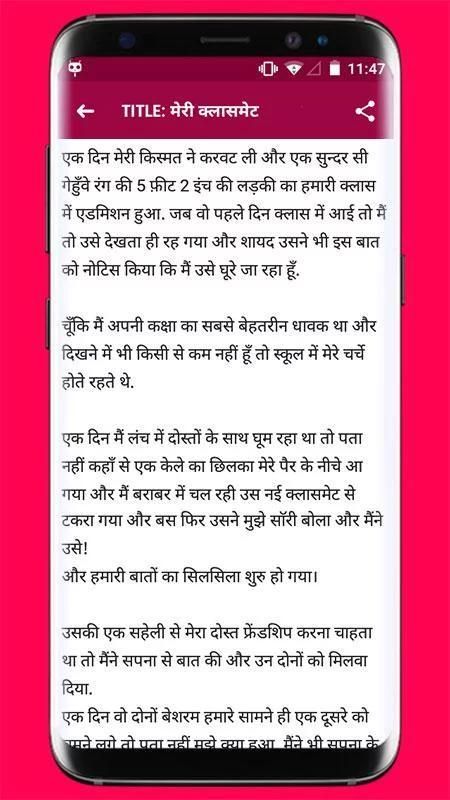 11:47
TITLE: मेरी क्लासमेट
एक दिन मेरी किस्मत ने करवट ली और एक सुन्दर सी
गेहुँवे रंग की 5 फ़ीट 2 इंच की लड़की का हमारी क्लास
में एडमिशन हुआ. जब वो पहले दिन क्लास में आई तो मैं
तो उसे देखता ही रह गया और शायद उसने भी इस बात
को नोटिस किया कि मैं उसे घूरे जा रहा हूँ.
चूँकि मैं अपनी कक्षा का सबसे बेहतरीन धावक था और
दिखने में भी किसी से कम नहीं हूँ तो स्कूल में मेरे चर्चे
होते रहते थे.
एक दिन मैं लंच में दोस्तों के साथ घूम रहा था तो पता
नहीं कहाँ से एक केले का छिलका मेरे पैर के नीचे आ
गया और मैं बराबर में चल रही उस नई क्लासमेट से
टकरा गया और बस फिर उसने मुझे सॉरी बोला और मैंने
उसे!
और हमारी बातों का सिलसिला शुरु हो गया।
उसकी एक सहेली से मेरा दोस्त फ्रेंडशिप करना चाहता
था तो मैंने सपना से बात की और उन दोनों को मिलवा
दिया.
एक दिन वो दोनों बेशरम हमारे सामने ही एक दूसरे को
चूमने लगे तो पता नहीं मुझे क्या हुआ, मैंने भी सपना के